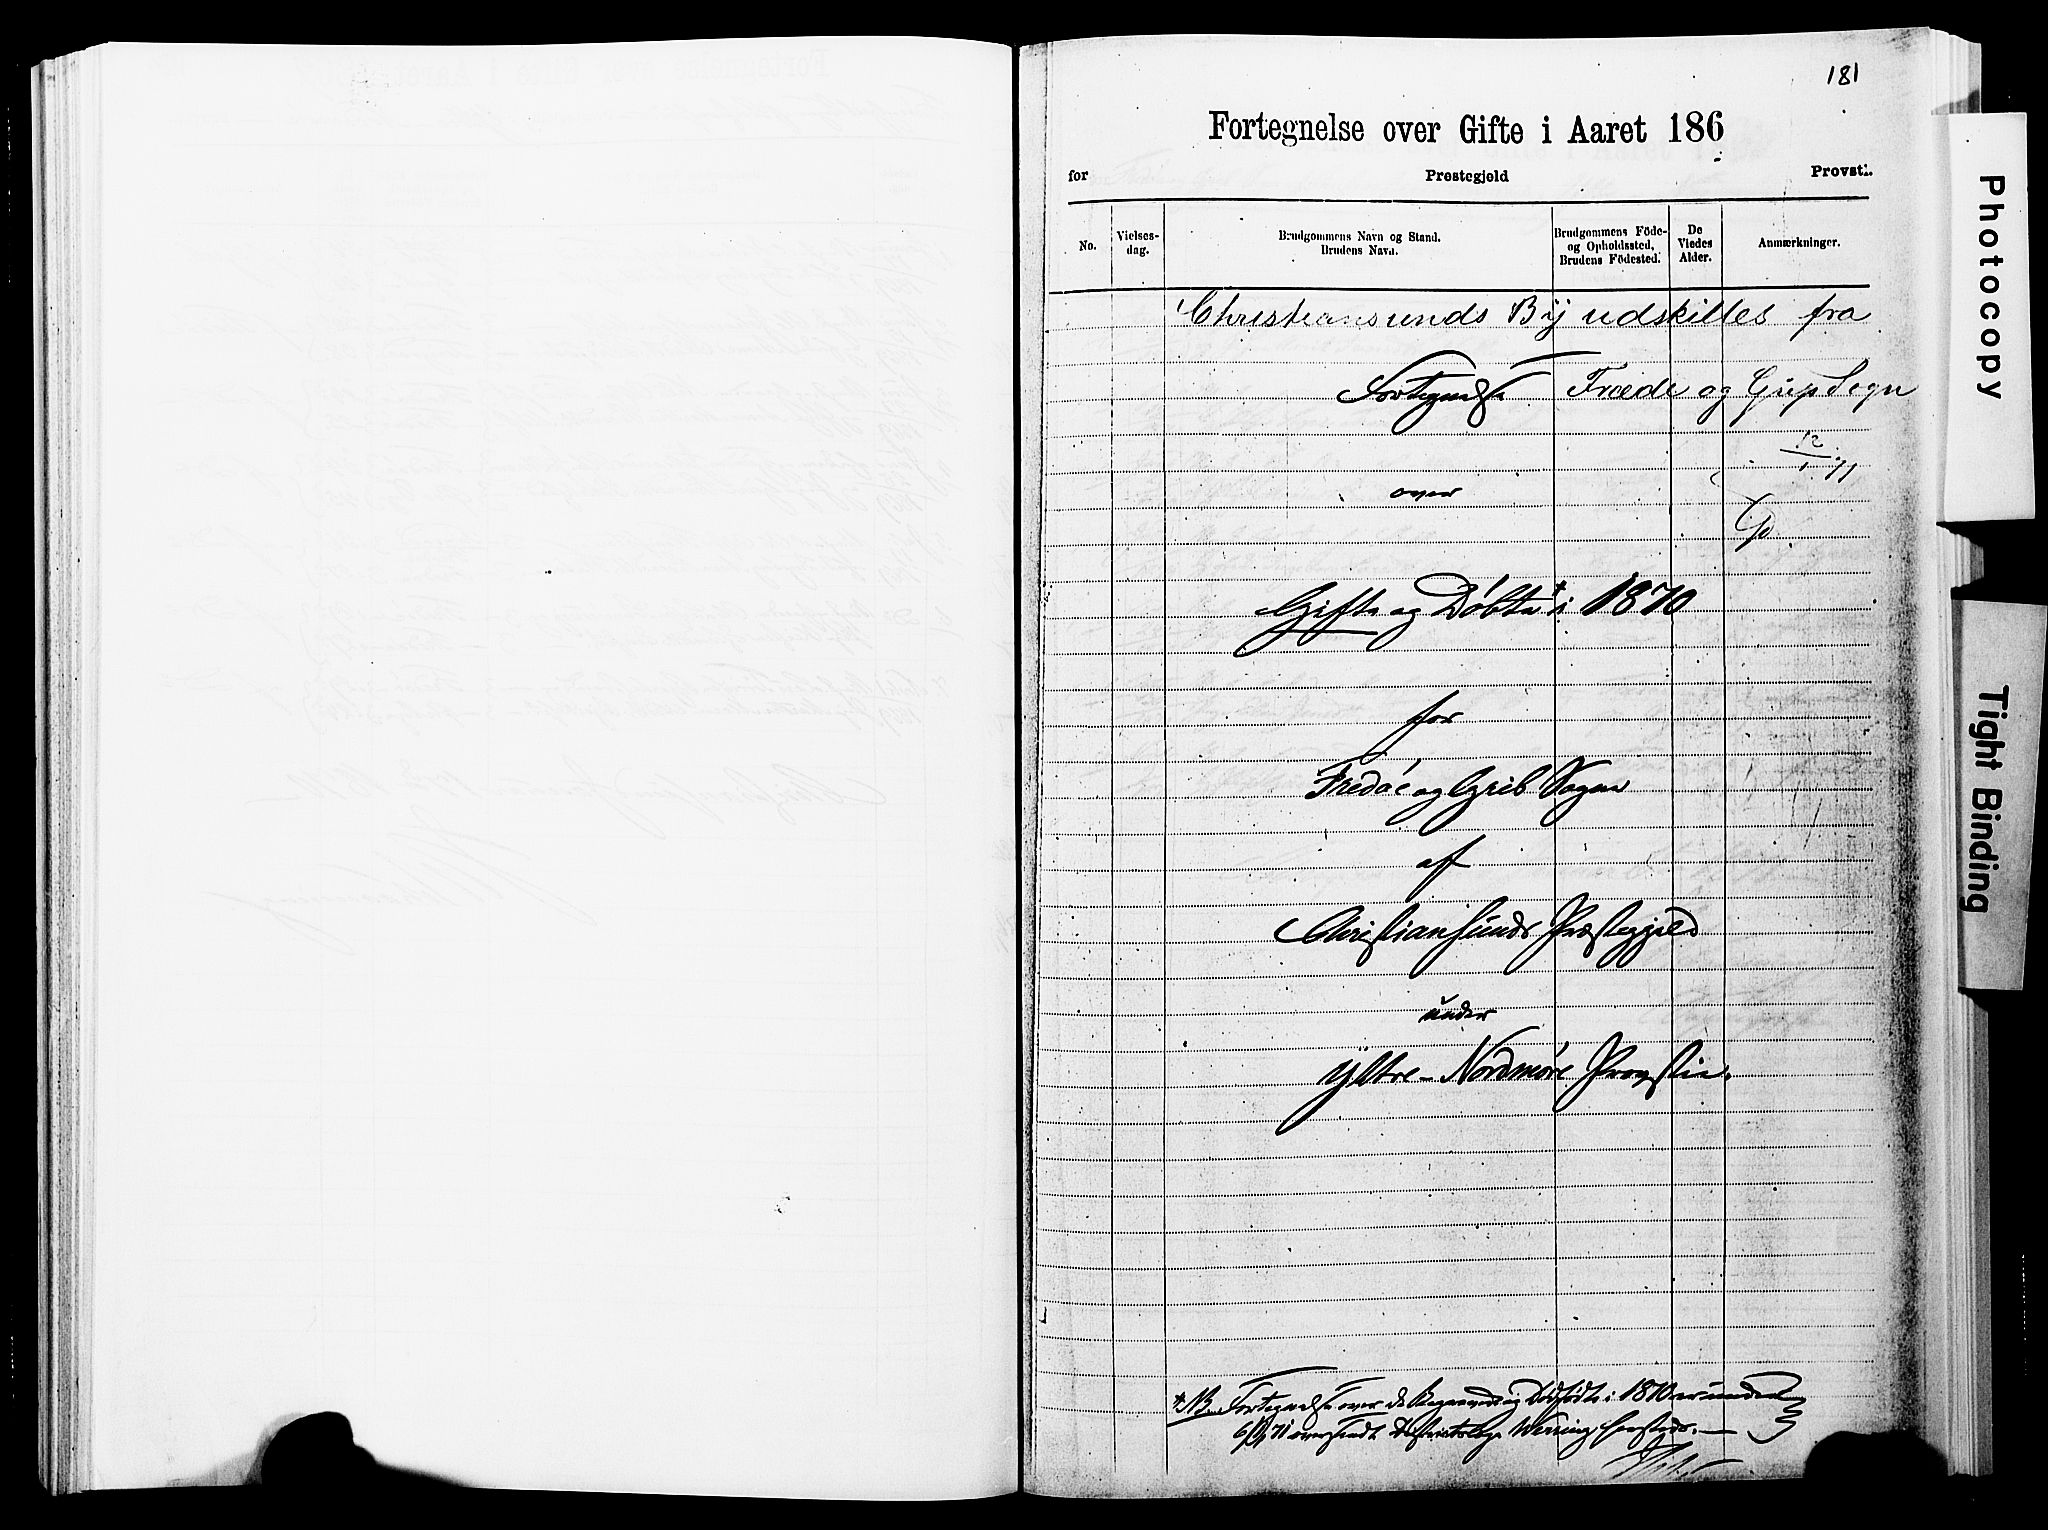 181
Fortegnelse over Gifte i Aaret 186
for Prestegjeld Provsti.
No. Vielses-dag. Brudgommens Navn og Stand. Brudens Navn. Brudgommens Föde- og Opholdssted, Brudens Födested. De Viedes Alder. Anmærkninger.
Christiansunds By udskilles fra
Fortegnelse Frædö og Grip Sogn
12/1 71
over
Gifte og Døbte † i 1870
for
Fredøe og Grib Sogne
af
Christiansunds Præstegjeld
under
Yttre-Nordmøre Provstie.
† NB. Fortegnelse over de Begravede og Dødfødte i 1870 er under
6/1 71 oversendt Districtslæge Werring
Photocopy
Tight Binding